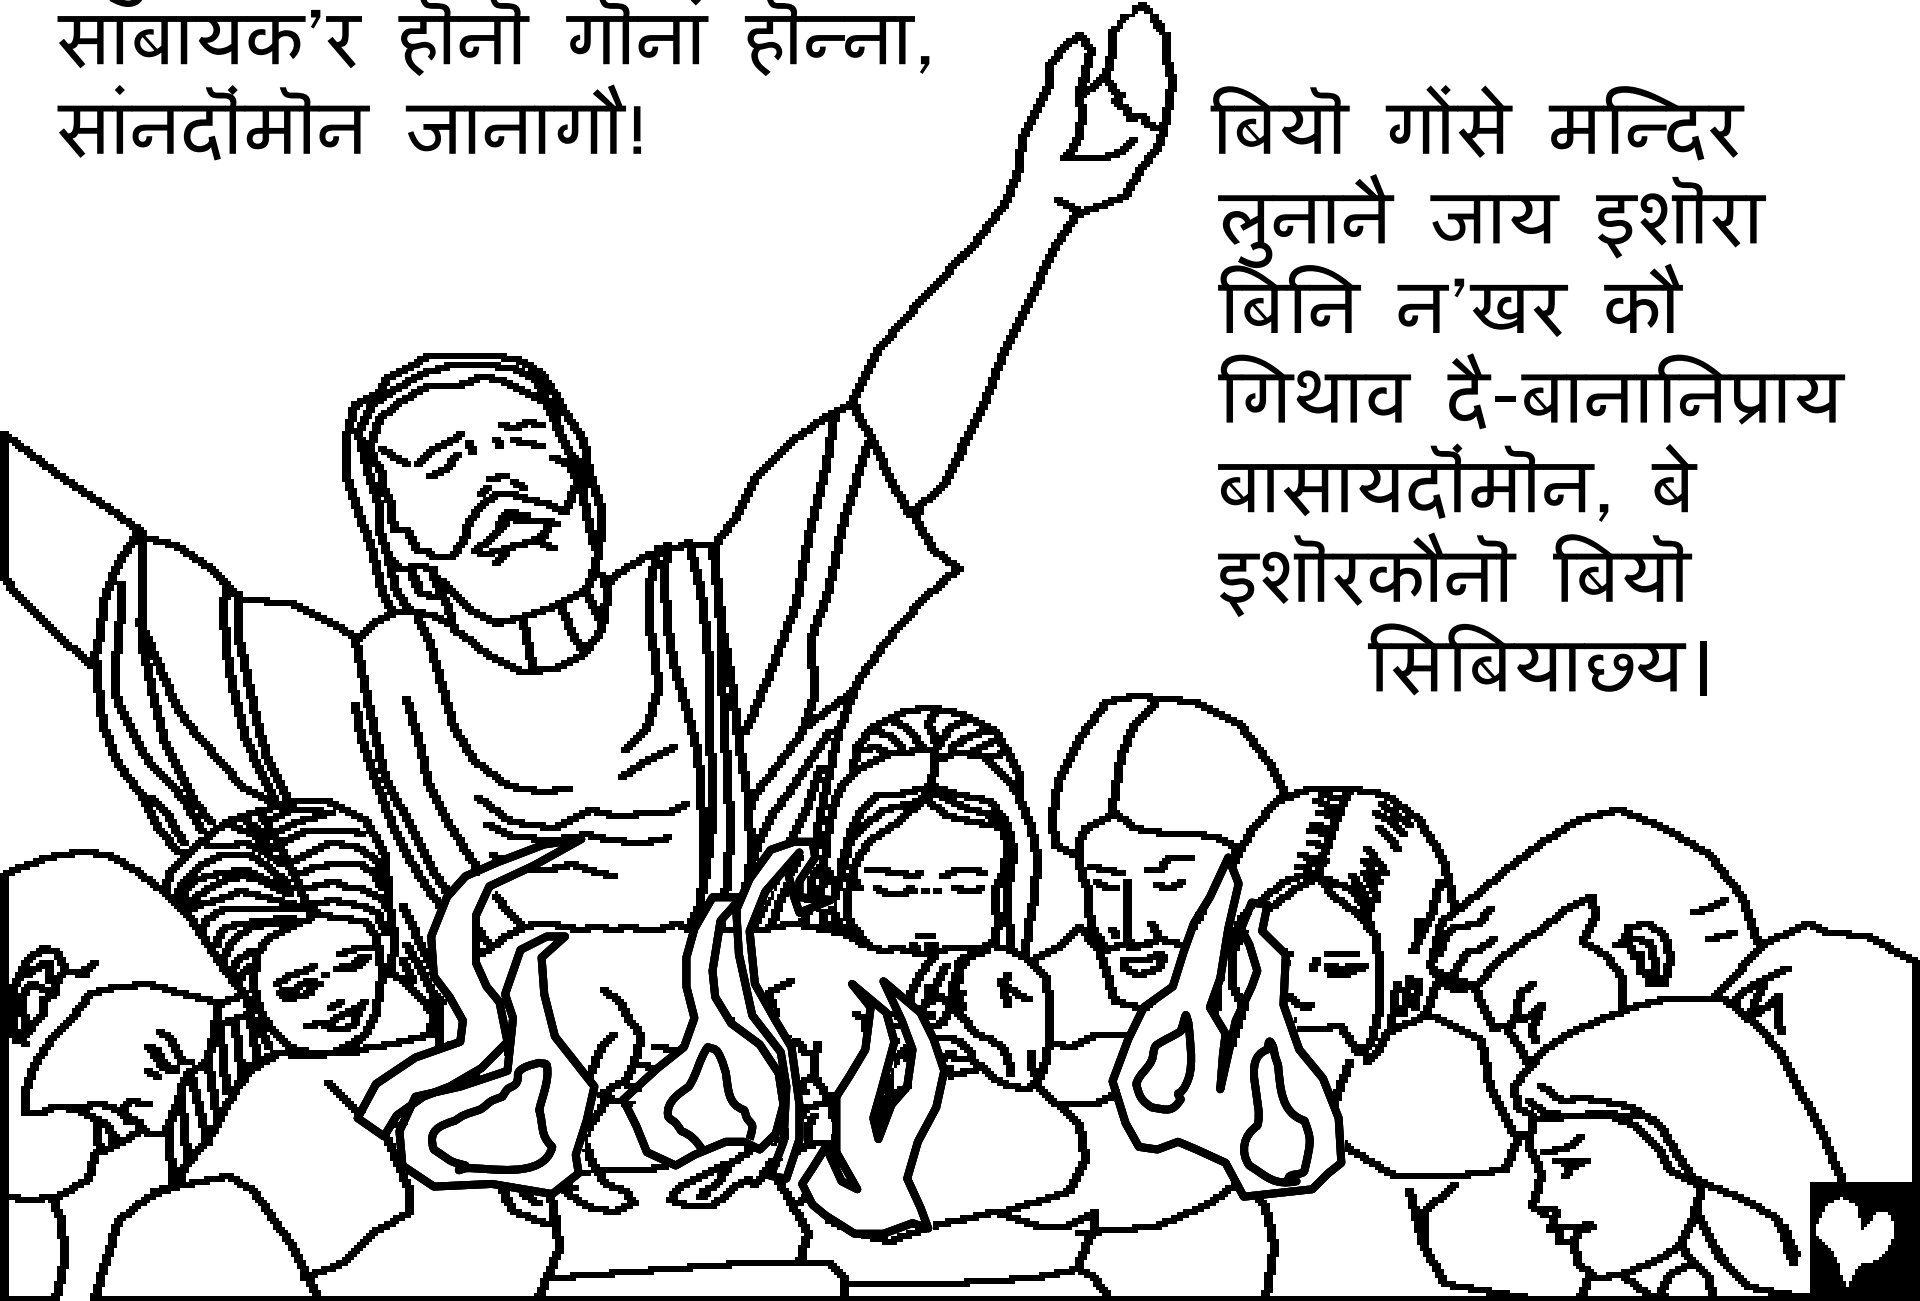 साबायक’र हॊनॊ गॊनां हॊन्ना,
सांनदॊंमॊन जानागौ!
बियॊ गोंसे मन्दिर
लुनानै जाय इशॊरा
बिनि न’खर कौ
गिथाव दै-बानानिप्राय
बासायदॊंमॊन, बे
इशॊरकौनॊ बियॊ
सिबियाछ्य।